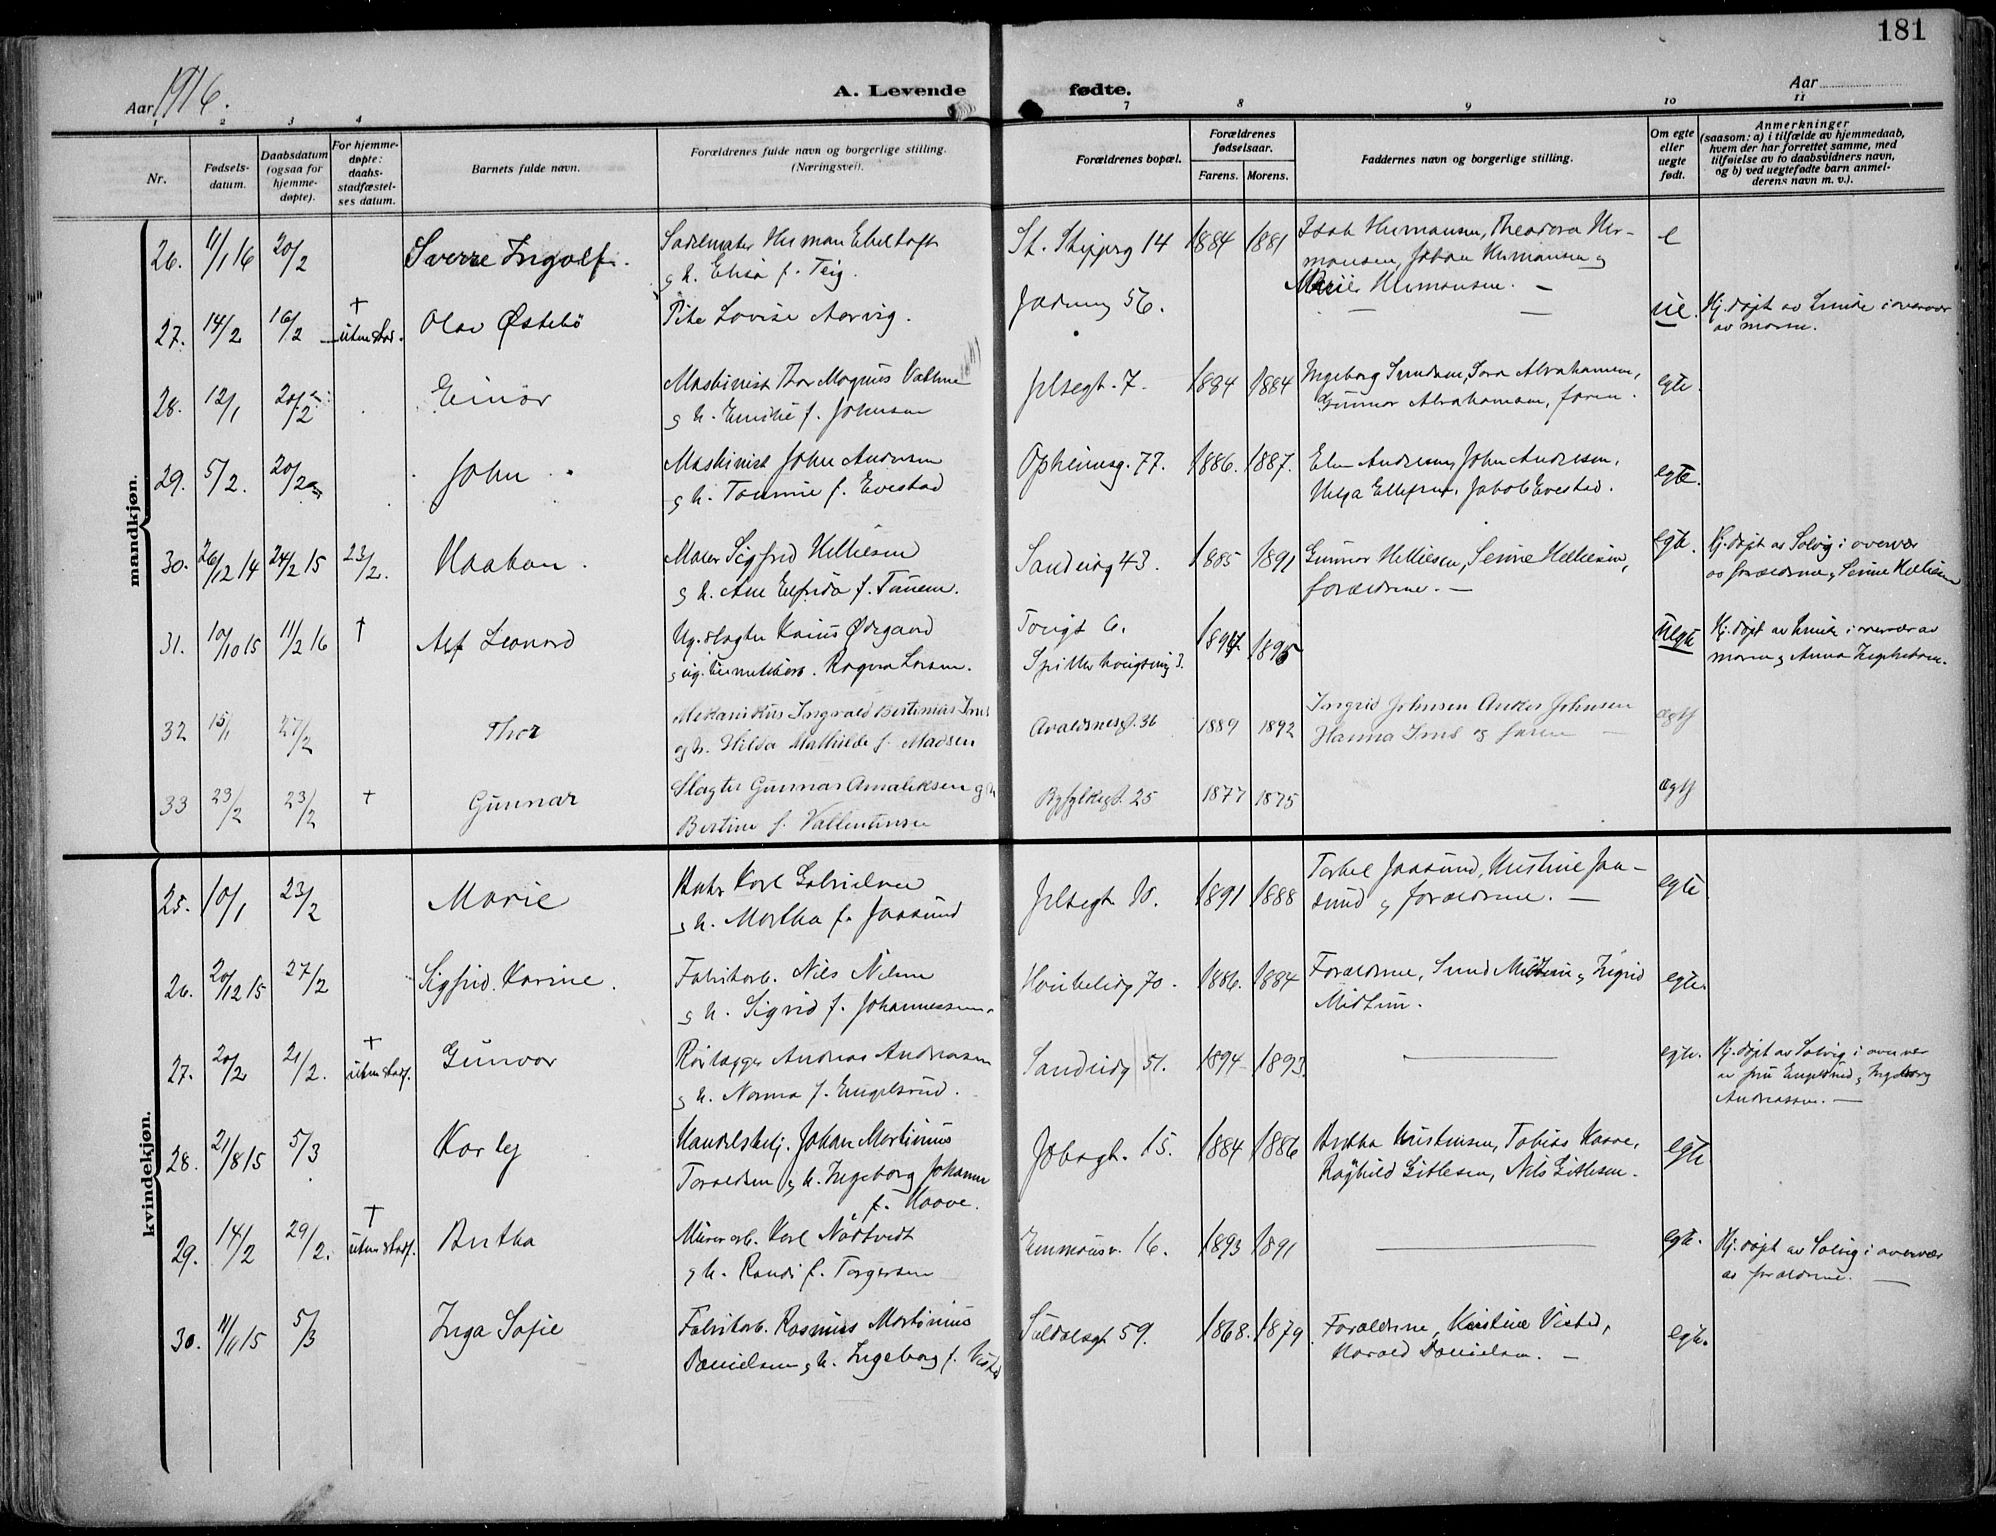 181
Aar 1916.
A. Levende fødte.
Aar
1 2 3 4 7 8 9 10 11
Nr.
Fødsels-
datum.
Daabsdatum
(ogsaa for
hjemme-
døpte).
For hjemme-
døpte:
daabs-
stadfæstel-
ses datum.
Barnets fulde navn.
Forældrenes fulde navn og borgerlige stilling.
(Næringsvei).
Forældrenes bopæl.
Forældrenes
fødselsaar.
Farens. Morens.
Faddernes navn og borgerlige stilling.
Om egte
eller
uegte
født.
Anmerkninger
(saasom: a) i tilfælde av hjemmedaab,
hvem der har forrettet samme, med
tilføielse av to daabsvidners navn,
og b) ved uegtefødte barn anmel-
derens navn m. v.).
mandkjøn.
26. 11/1 16 20/2 Sverre Ingolf.
g h. Elisa f. Teig.
14 1884 1881
Theodora Her-
mansen, Johan Hermansen g
Hermansen. —
e
27. 14/2 16/2 † uten stad. Olav Østebö
Lovise Aarvig.
56.
ue. Hj. døpt av i overvær
av moren.
28. 12/1 20/2 Einar
Maskinist Thor Magnus
g h. Emilie f. Johnsen
Jelsegt. 7. 1884 1884
Ingeborg Sara Abrahamsen,
Gunnar Abrahamsen, faren.
egte.
29. 5/2. 20/2 John
Maskinist John Andersen
g h. f. Evestad
Opheimsg. 77. 1886. 1887.
John Andresen,
Helga Ellefsen, Jakob Evestad.
egte.
30. 26/12 14 24/2 15 23/2. Haakon.
Maler Sigfrid Helliesen
g h. Ane Elfrida f.
43. 1885 1891
Gunnar Helliesen, Serine Helliesen,
forældrene. —
egte. Hj. døpt av Solvig i overvær
av forældrene g Serine Helliesen
31. 10/10 15 11/2 16 † Alf Leonard
Ug. slagter Ødegaard
Ragna Larsen.
Torvgt 6.
3.
1894 1895
Uegte Hj. døpt av i overvær av
moren g Anna
32 15/1 27/2 Thor
Mekanikus Ingvald Bertinius Ims
og h. Hilda Mathilde f. Madsen
Avaldsnesgt. 36 1889 1892
Ingrid Johnsen Anker Johnsen
Hanna Ims og faren —
ægtf
33 23/2 23/2 † Gunnar
Slagter Gunnar Amaliksen g h
Bertine f. Vallentinsen
Ryfylkegt. 25 1877 1875
ægtf
kvindekjøn.
25. 10/1 23/2 Marie
Karl Gabrielsen
g h. Martha f. Jaasund
Jelsegt. 1891 1888
Jaasund, Kristine Jaa-
sund g forældrene. —
egte
26. 20/12 15 27/2 Sigfrid Karine.
Fabrikarb. Nils Nilsen
g h. Sigrid f. Johannessen.
70. 1886. 1884
Forældrene, g Sigrid
Midtun.
egte.
27. 20/2 21/2. † uten stadf. Gunvor
Rørlægger Andreas Andreasen
g h. Norma f. Engelsrud.
51. 1894 1893.
egte. Hj. døpt av Solvig i overvær
av fru Engelsrud g Ingeborg
Andreassen. —
28. 21/8 15 5/3
Handelsbetj. Johan Martinius
Toraldsen g h. Ingeborg Johanne
f. Haave.
15. 1884 1886
Kristensen, Tobias Haave,
Ragnhild Gitlesen, Nils Gitlesen.
egte
29. 14/2 29/2. † uten stadf. Bertha
Murerarb. Karl Nødtvedt
g h. Randi f. Torgersen
Emmausv. 16. 1893 1891
egte. Hj. døpt av Solvig i overvær
av forældrene. —
30. 11/11 15 5/3 Inga Sofie
Fabrikarb. Rasmus Martinius
Danielsen g h. Ingeborg f. Visted
Suldalsgt 59. 1868. 1879.
Forældrene, Kristine Visted,
Harald Danielsen. —
egte.